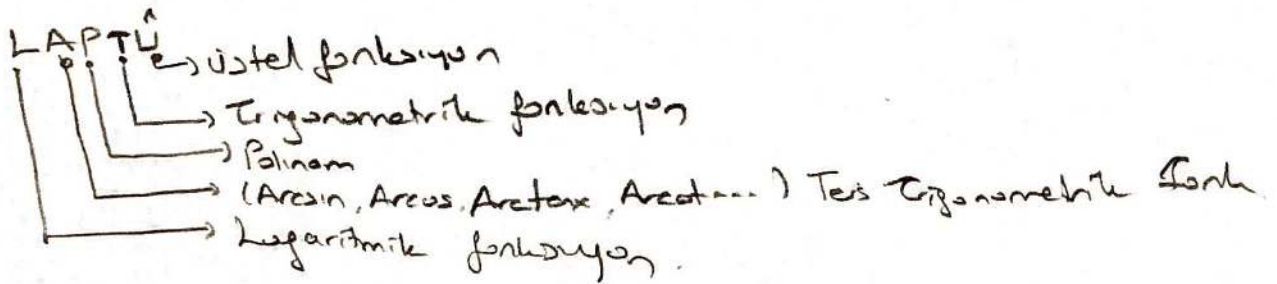 LAPTÜ
üstel fonksiyon
Trigonometrik fonksiyon
Polinom
(Arcsin, Arccos, Arctanx, Arccot....) Ters Trigonometrik fonk
Logaritmik fonksiyon.